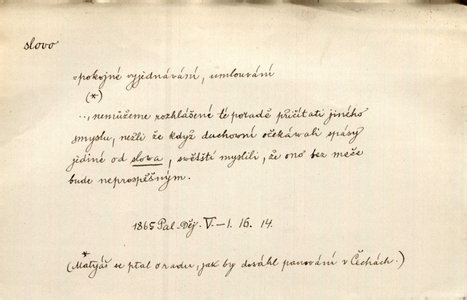 slovo
spokojné vyjednávání, umlouvání
(*)
.., nemůžeme rozhlášené té poradě přičítati jiného
smyslu, nežli že když duchovní očekávali spásy
jediné od slova, světští myslili, že ono bez meče
bude neprospěšným.
1865 Pal. Děj. V-1. 16. 14.
*
(Matyáš se ptal o radu, jak by dosáhl panování v Čechách.)